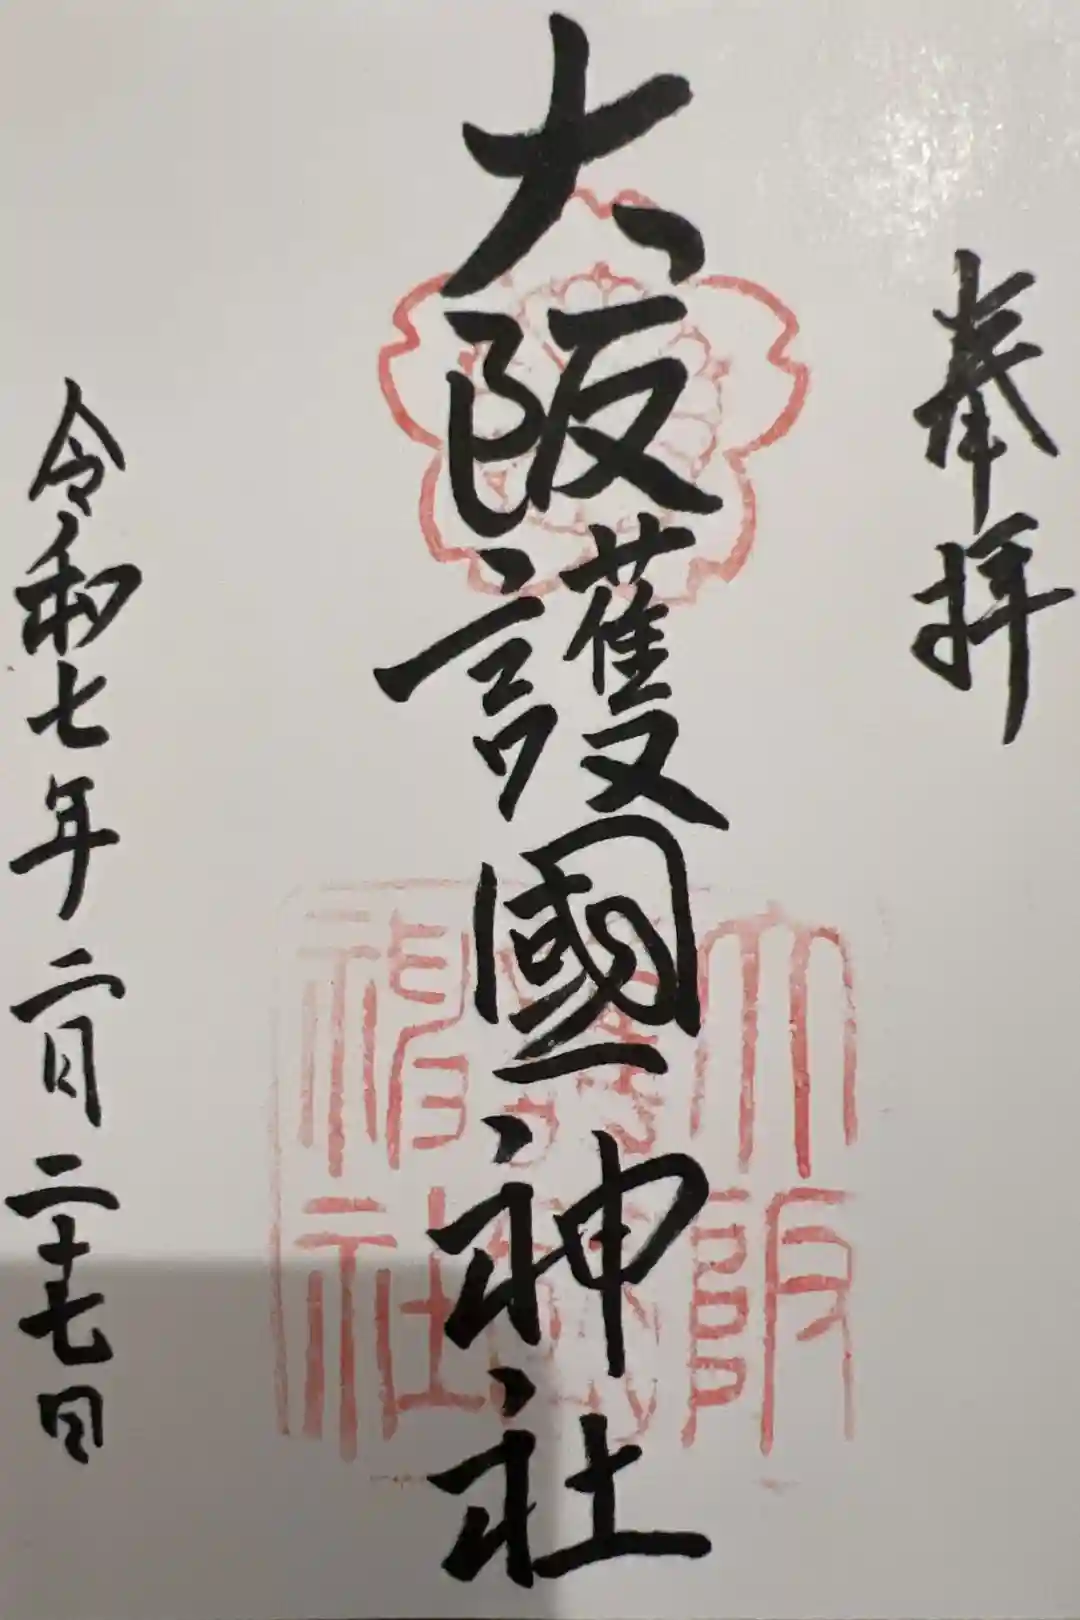 奉拝
大阪護國神社
令和七年二月二十七日
大阪
護國
神社